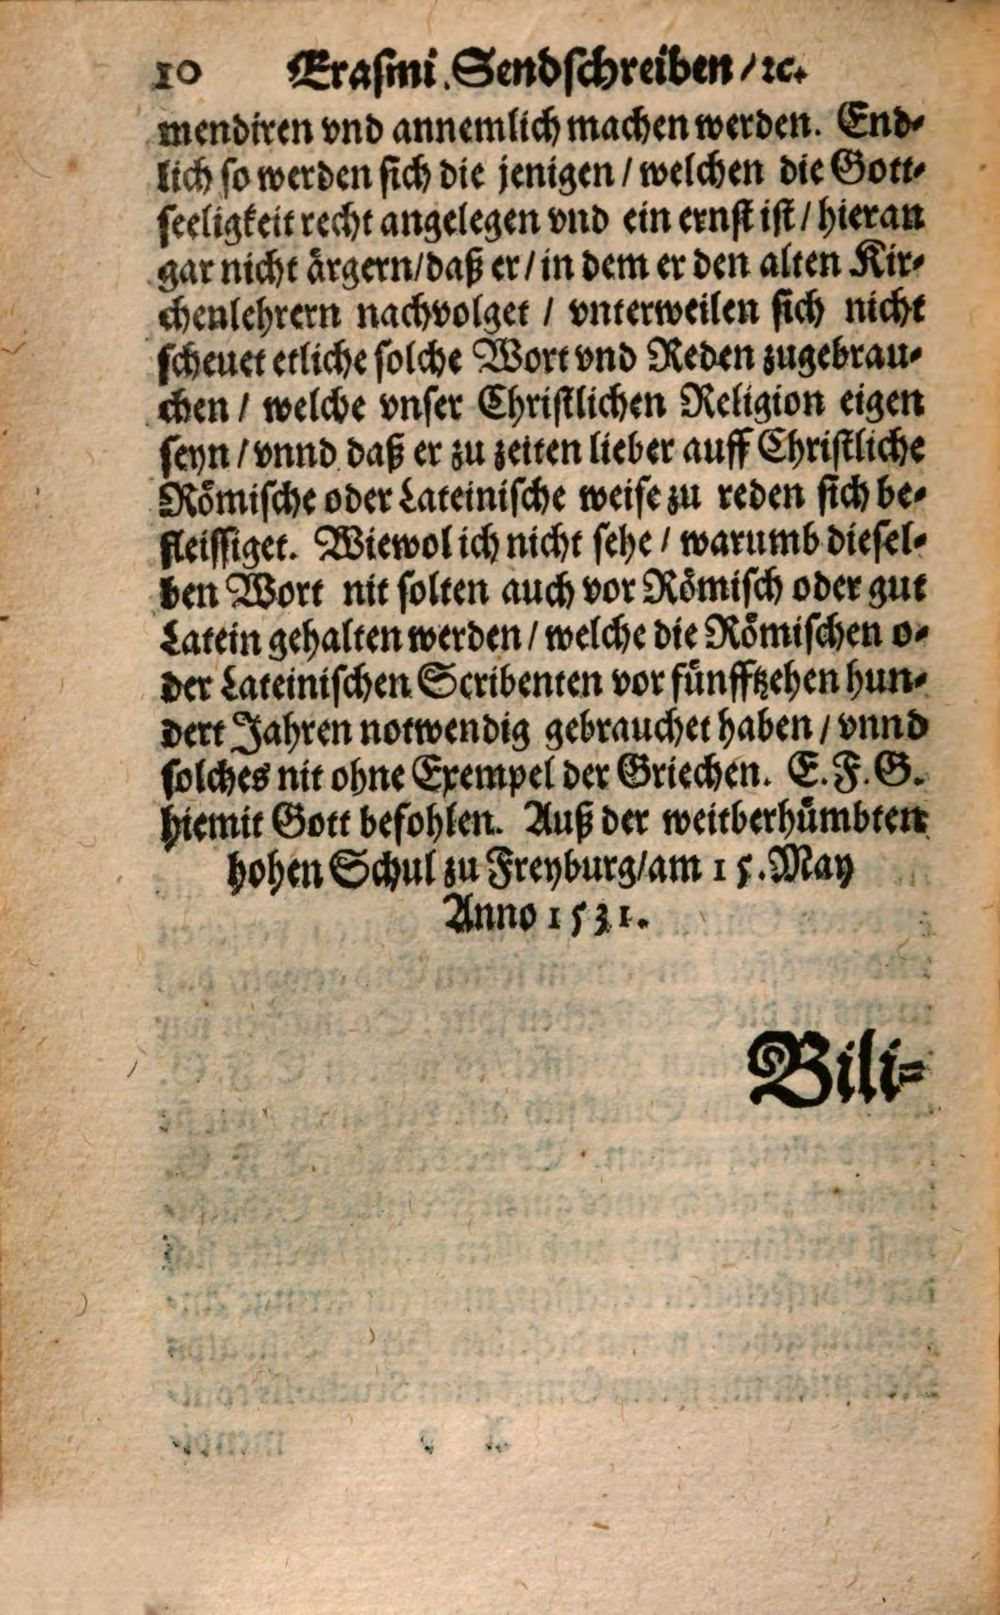 10 Erasmi Sendschreiben / ꝛc.
mendiren vnd annemlich machen werden. End⸗
lich so werden sich die jenigen / welchen die Gott⸗
seeligkeit recht angelegen vnd ein ernst ist / hieran
gar nicht ärgern / daß er / in dem er den alten Kir⸗
chenlehrern nachvolget / vnterweilen sich nicht
scheuet etliche solche Wort vnd Reden zugebrau⸗
chen / welche vnser Christlichen Religion eigen
seyn / vnnd daß er zu zeiten lieber auff Christliche
Römische oder Lateinische weise zu reden sich be⸗
fleissiget. Wiewol ich nicht sehe / warumb diesel⸗
ben Wort nit solten auch vor Römisch oder gut
Latein gehalten werden / welche die Römischen o⸗
der Lateinischen Scribenten vor fünfftzehen hun⸗
dert Jahren notwendig gebrauchet haben / vnnd
solches nit ohne Exempel der Griechen. E. F. G.
hiemit Gott befohlen. Auß der weitberhümbten
hohen Schul zu Freyburg / am 15. May
Anno 1531.
Bili⸗